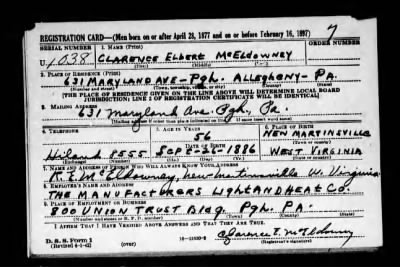 REGISTRATION CARD—(Men born on or after April 28, 1877 and on or before February 16, 1897)
SERIAL NUMBER 1. NAME (Print) ORDER NUMBER
U 1038 CLARENCE ELBERT McELDOWNEY 7
(First) (Middle) (Last)
2. PLACE OF RESIDENCE (Print)
631 MARYLAND AVE - Pgh. ALLEGHENY - PA.
(Number and street) (Town, township, village, or city) (County) (State)
[THE PLACE OF RESIDENCE GIVEN ON THE LINE ABOVE WILL DETERMINE LOCAL BOARD
JURISDICTION; LINE 2 OF REGISTRATION CERTIFICATE WILL BE IDENTICAL]
3. MAILING ADDRESS
631 Maryland Ave. Pgh, Pa.
[Mailing address if other than place indicated on line 2. If same insert word same]
4. TELEPHONE 5. AGE IN YEARS 6. PLACE OF BIRTH
56 NEW MARTINSVILLE
DATE OF BIRTH (Town or county)
Hiland 8755 SEP 8-26-1886 WEST VIRGINIA
(Exchange) (Number) (Mo.) (Day) (Yr.) (State or country)
7. NAME AND ADDRESS OF PERSON WHO WILL ALWAYS KNOW YOUR ADDRESS
R.E. McEldowney, New Martinsville W. Virginia
8. EMPLOYER'S NAME AND ADDRESS
THE MANUFACTURERS LIGHT AND HEAT CO.
9. PLACE OF EMPLOYMENT OR BUSINESS
800 UNION TRUST BLDG. Pgh. PA.
(Number and street or R. F. D. number) (Town) (County) (State)
I AFFIRM THAT I HAVE VERIFIED ABOVE ANSWERS AND THAT THEY ARE TRUE.
D. S. S. Form 1 Clarence E. McEldowney
(Revised 4-1-42) (over) (Registrant's signature)